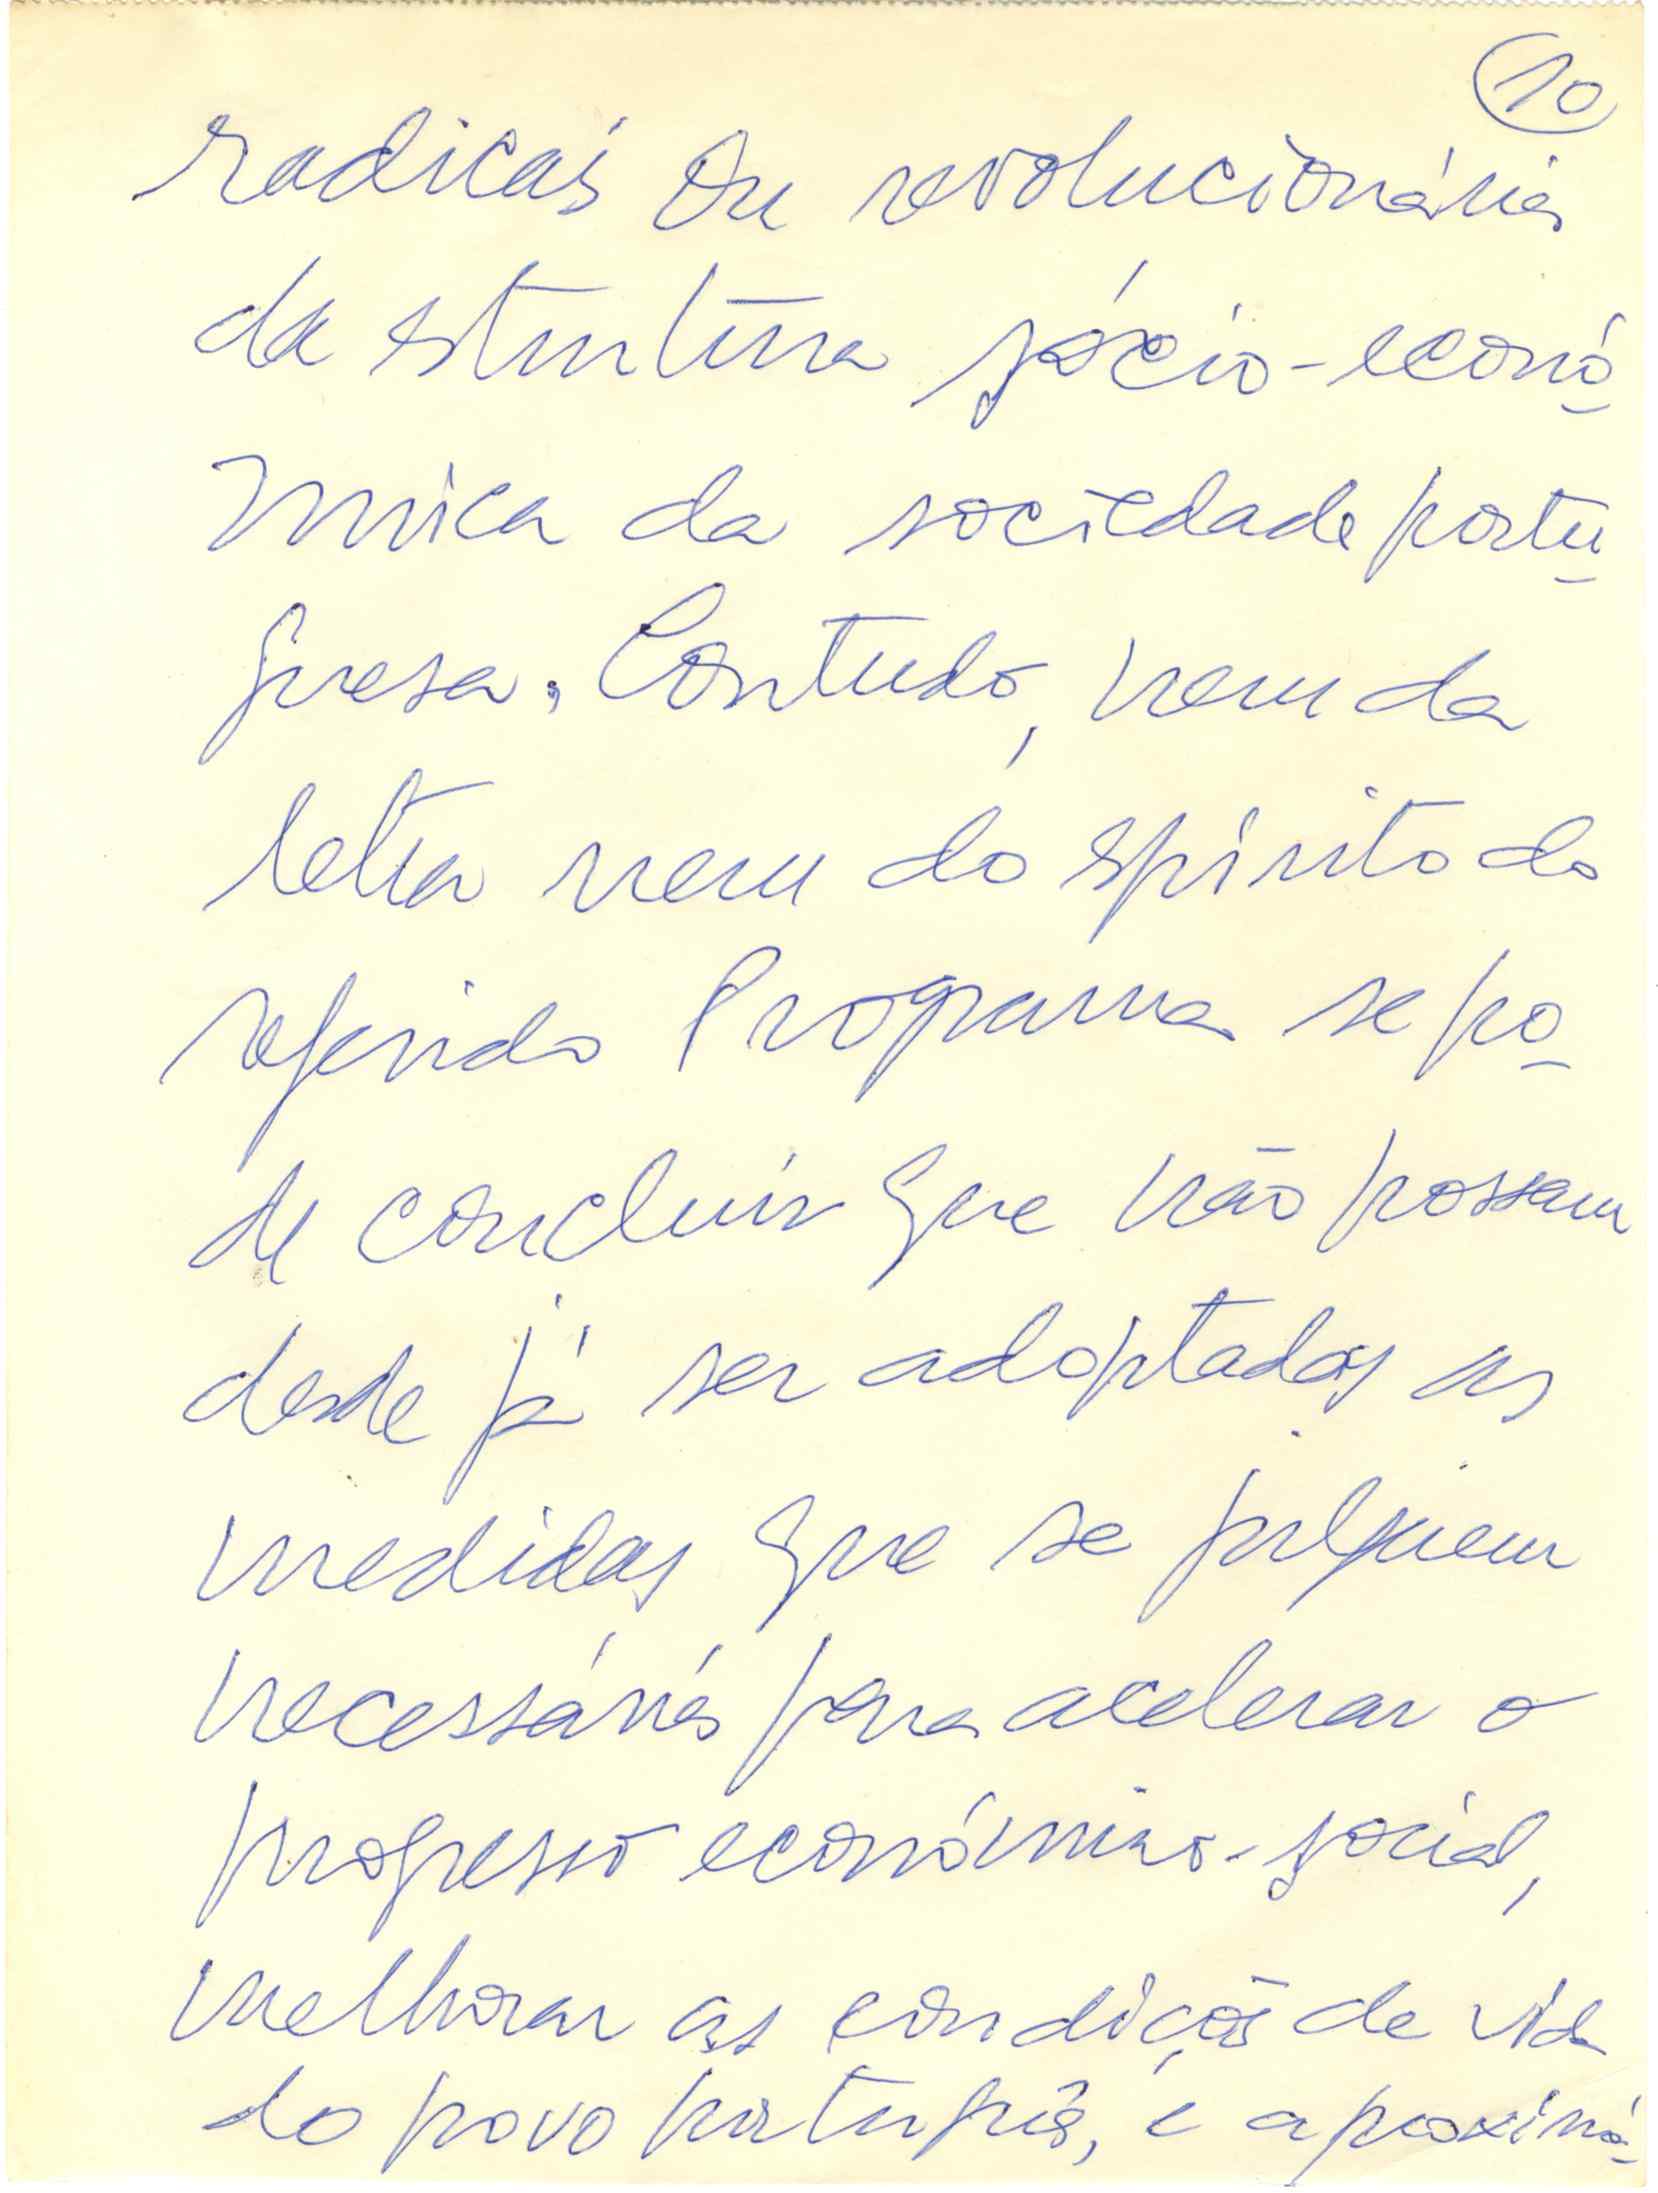 10
radicais ou revolucionárias
da estrutura sócio-econó-
mica da sociedade portu-
guesa. Contudo, nem da
letra nem do espírito do
referido Programa se po-
de concluir que não possam
desde já ser adoptadas as
medidas que se julguem
necessárias para acelerar o
progresso económico-social,
melhorar as condições de vida
do povo português, e aproximá-